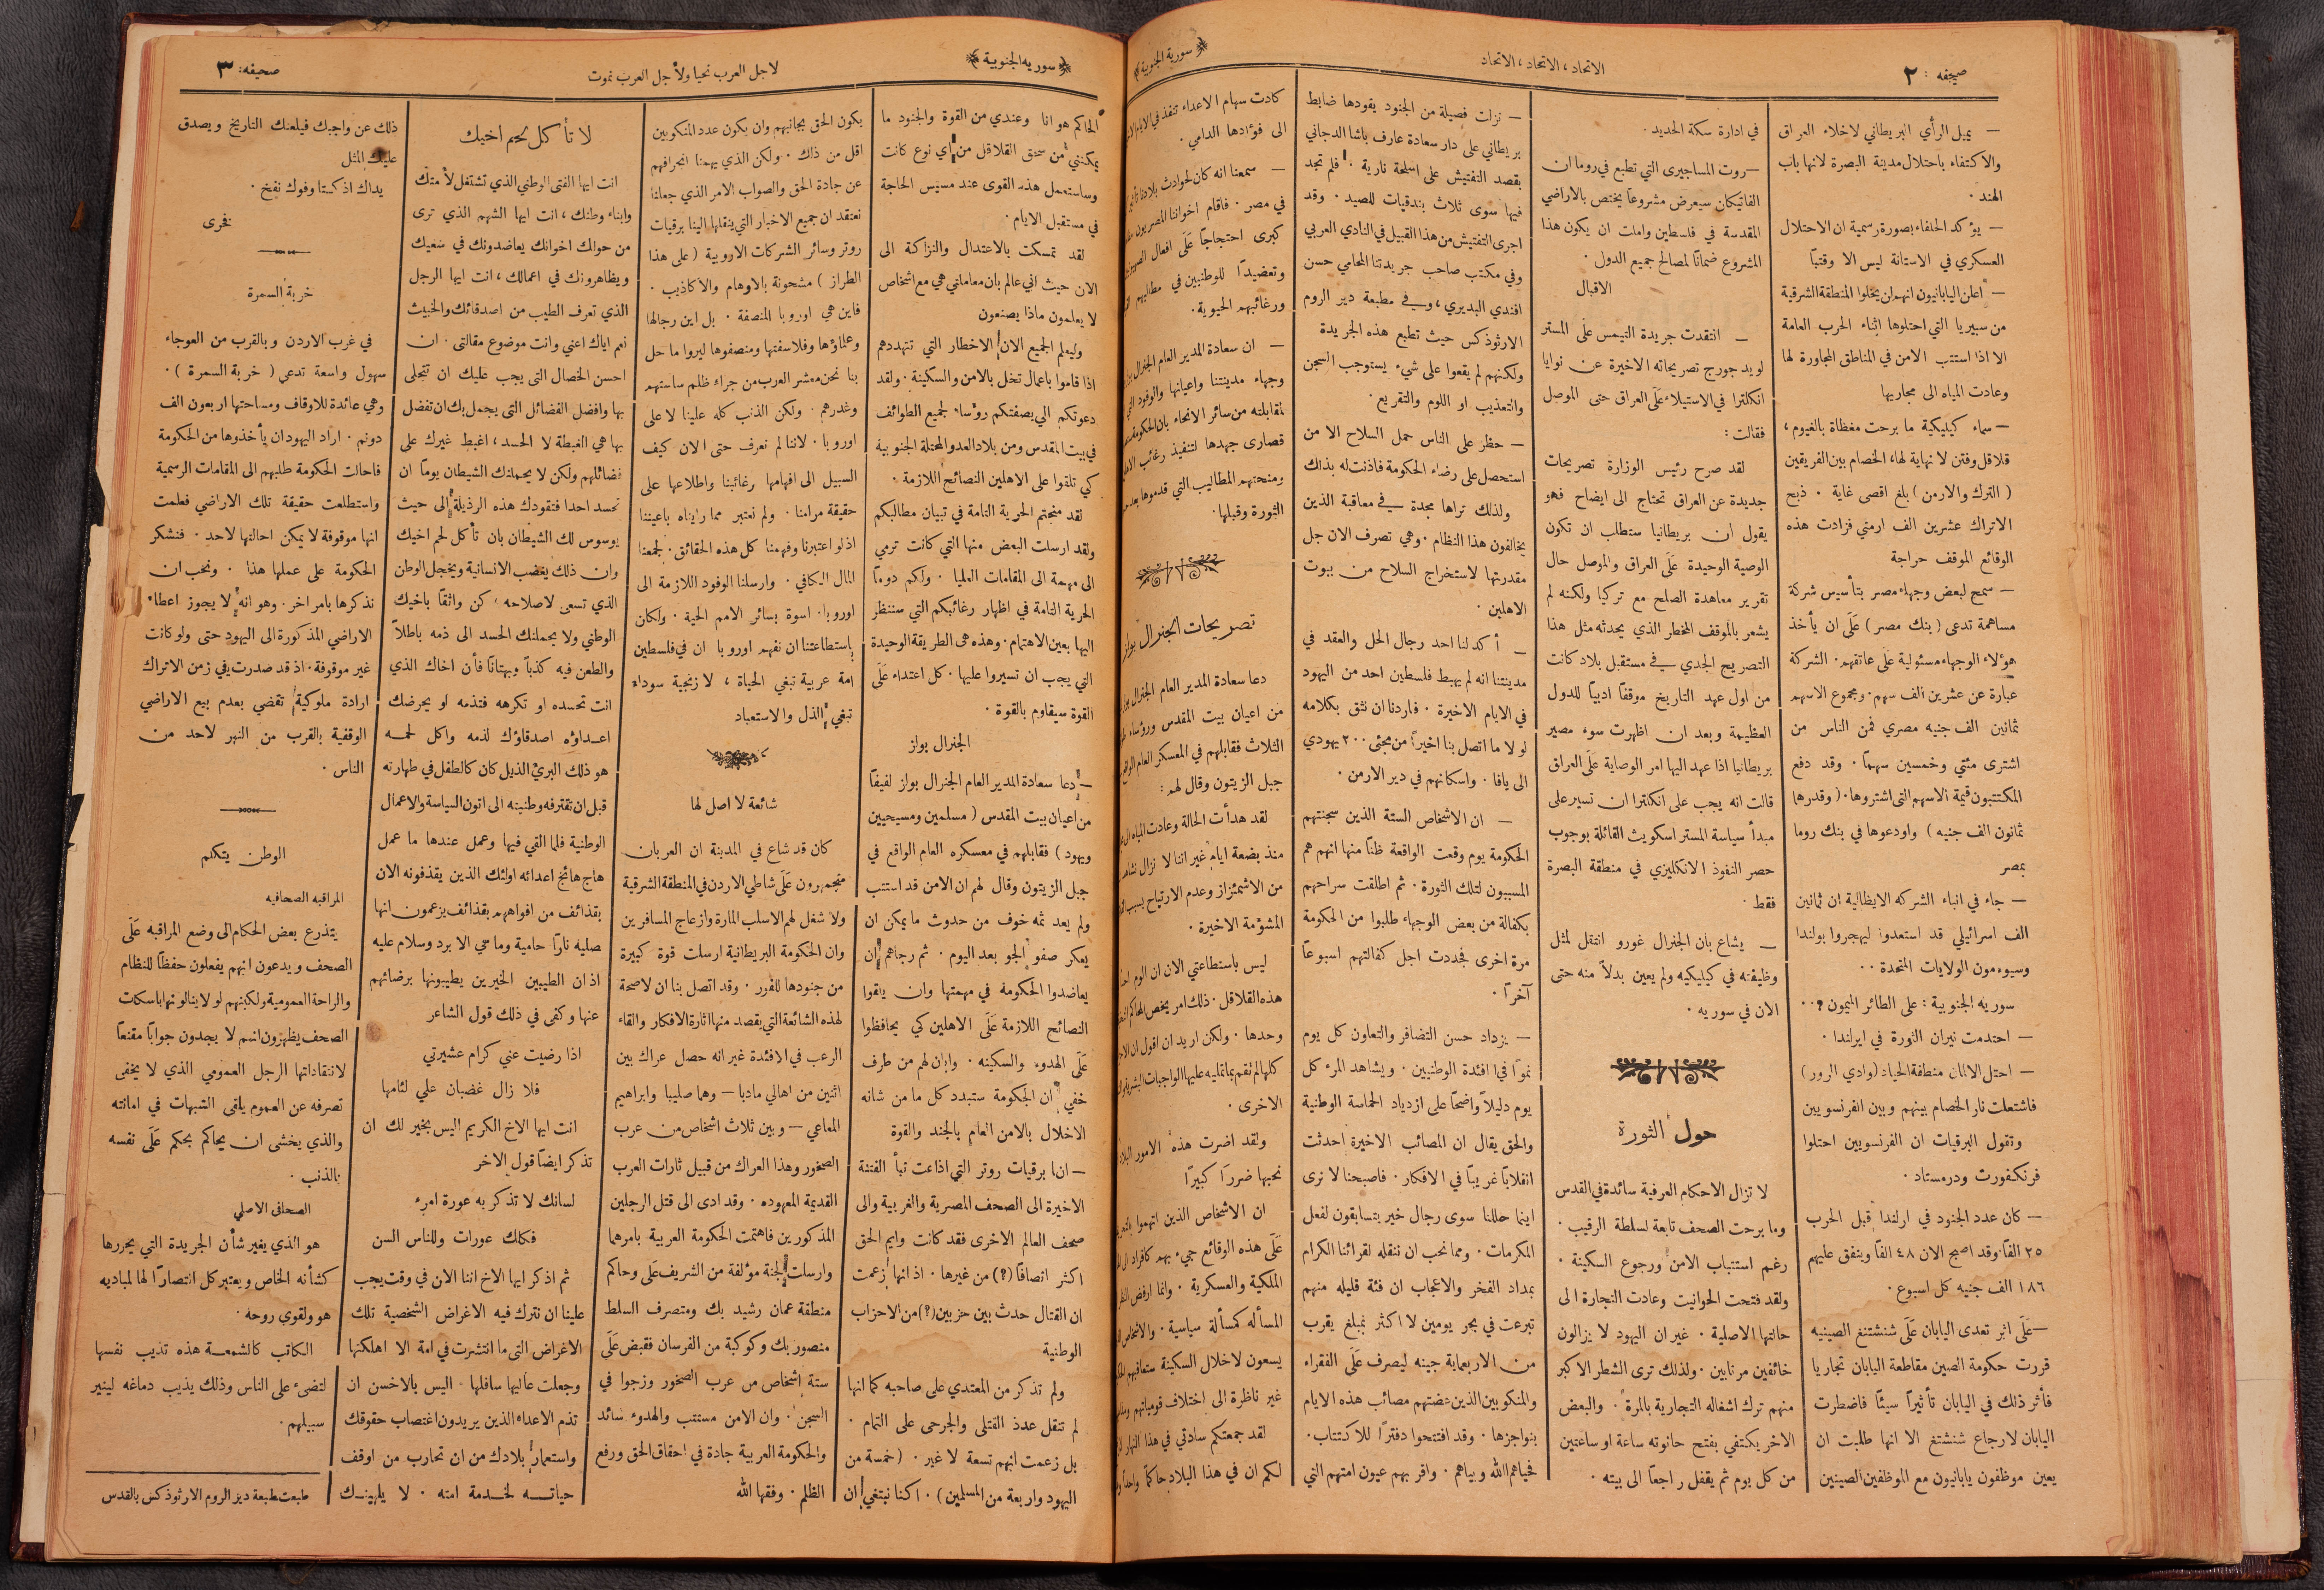 صحيفه : ٢
الاتحاد ، الاتحاد ، الاتحاد
﴿ سورية الجنوبية ﴾
— يميل الرأي البريطاني لاخلاء العراق
والاكتفاء باحتلال مدينة البصرة لانها باب
الهند ·
— يؤكد الحلفاء بصورة رسمية ان الاحتلال
العسكري في الاستانة ليس الا وقتياً
— اعلن اليابانيون انهم لن يخلوا المنطقة الشرقية
من سبيريا التي احتلوها اثناء الحرب العامة
الا اذا استتب الامن في المناطق المجاورة لها
وعادت المياه الى مجاريها
— سماء كيليكية ما برحت مغطاة بالغيوم ،
قلاقل وفتن لا نهاية لها ، الخصام بين الفريقين
( الترك والارمن ) بلغ اقصى غاية · ذبح
الاتراك عشرين الف ارمني فزادت هذه
الوقائع الموقف حراجة
— سمح لبعض وجهاء مصر بتأسيس شركة
مساهمة تدعى ( بنك مصر ) عَلَى ان يأخذ
هؤلاء الوجهاء مسئولية عَلَى عاتقهم · الشركة
عبارة عن عشرين الف سهم · ومجموع الاسهم
ثمانين الف جنيه مصري فمن الناس من
اشترى مئتي وخمسين سهماً · وقد دفع
المكتتبون قيمة الاسهم التى اشتروها · ( وقدرها
ثمانون الف جنيه ) واودعوها في بنك روما
بمصر
— جاء في انباء الشركه الايطالية ان ثمانين
الف اسرائيلي قد استعدوا ليهجروا بولندا
وسيوءمون الولايات المتحدة · ·
سوريه الجنوبية : على الطائر الميمون ؟ · ·
— احتدمت نيران الثورة في ايرلندا ·
— احتل الالمان منطقة الحياد ( وادي الرور )
فاشتعلت نار الخصام بينهم وبين الفرنسويين
وتقول البرقيات ان الفرنسويين احتلوا
فرنكفورت ودرمستاد ·
— كان عدد الجنود في ارلندا قبل الحرب
٢٥ الفاً وقد اصبح الان ٤٨ الفاً وينفق عليهم
١٨٦ الف جنيه كل اسبوع ·
— عَلَى اثر تعدى اليابان عَلَى شنشتنغ الصينيه
قررت حكومة الصين مقاطعة اليابان تجاريا
فأثر ذلك في اليابان تأثيراً سيئاً فاضطرت
اليابان لارجاع شنشتنغ الا انها طلبت ان
يعين موظفون يابانيون مع الموظفين الصينين
في ادارة سكة الحديد ·
— روت المساجيرى التي تطبع في روما ان
الفاتيكان سيعرض مشروعاً يختص بالاراضي
المقدسة في فلسطين واملت ان يكون هذا
المشروع ضماناً لمصالح جميع الدول ·
الاقبال
— انتقدت جريدة التيمس عَلَى المستر
لويد جورج تصريحاته الاخيرة عن نوايا
انكلترا في الاستيلاء عَلَى العراق حتى الموصل
فقالت :
لقد صرح رئيس الوزارة تصريحات
جديدة عن العراق تحتاج الى ايضاح فهو
يقول ان بريطانيا ستطلب ان تكون
الوصية الوحيدة عَلَى العراق والموصل حال
تقرير معاهدة الصلح مع تركيا ولكنه لم
يشعر بالموقف الخطر الذي يحدثه مثل هذا
التصريح الجدي في مستقبل بلاد كانت
من اول عهد التاريخ موقفاً ادبياً للدول
العظيمة وبعد ان اظهرت سوء مصير
بريطانيا اذا عهد اليها امر الوصاية عَلَى العراق
قالت انه يجب على انكلترا ان تسير على
مبدأ سياسة المستر اسكويث القائلة بوجوب
حصر النفوذ الانكليزي في منطقة البصرة
فقط ·
— يشاع بان الجنرال غورو انتقل لمثل
وظيفته في كيليكيه ولم يعين بدلاً منه حتى
الان في سوريه ·
حول الثورة
لا تزال الاحكام العرفية سائدة في القدس
وما برحت الصحف تابعة لسلطة الرقيب ·
رغم استتباب الامن ورجوع السكينة ·
ولقد فتحت الحوانيت وعادت التجارة الى
حالتها الاصلية · غير ان اليهود لا يزالون
خائفين مرتابين · ولذلك ترى الشطر الاكبر
منهم ترك اشغاله التجارية بالمرة · والبعض
الاخر يكتفي بفتح حانوته ساعة او ساعتين
من كل يوم ثم يقفل راجعاً الى بيته ·
— نزلت فصيلة من الجنود يقودها ضابط
بريطاني على دار سعادة عارف باشا الدجاني
بقصد التفتيش على اسلحة نارية · فلم تجد
فيها سوى ثلاث بندقيات للصيد · وقد
اجرى التفتيش من هذا القبيل في النادي العربي
وفي مكتب صاحب جريدتنا المحامي حسن
افندي البديري ، وفي مطبعة دير الروم
الارثوذكس حيث تطبع هذه الجريدة
ولكنهم لم يقعوا على شيء يستوجب السجن
والتعذيب او اللوم والتقريع ·
— حظر على الناس حمل السلاح الا من
استحصل على رضاء الحكومة فاذنت له بذلك
ولذلك تراها مجدة في معاقبة الذين
يخالفون هذا النظام · وهي تصرف الان جل
مقدرتها لاستخراج السلاح من بيوت
الاهلين ·
— أكد لنا احد رجال الحل والعقد في
مدينتنا انه لم يهبط فلسطين احد من اليهود
في الايام الاخيرة · فاردنا ان نثق بكلامه
لولا ما اتصل بنا اخيراً من مجئ ٢٠٠ يهودي
الى يافا · واسكانهم في دير الارمن ·
— ان الاشخاص الستة الذين سجنتهم
الحكومة يوم وقعت الواقعة ظناً منها انهم هم
المسببون لتلك الثورة · ثم اطلقت سراحهم
بكفالة من بعض الوجهاء طلبوا من الحكومة
مرة اخرى فجددت اجل كفالتهم اسبوعاً
آخراً ·
— يزداد حسن التضافر والتعاون كل يوم
نمواً في افئدة الوطنيين · ويشاهد المرء كل
يوم دليلاً واضحاً على ازدياد الحماسة الوطنية
والحق يقال ان المصائب الاخيرة احدثت
انقلاباً غريباً في الافكار · فاصبحنا لا نرى
اينما حللنا سوى رجال خير يتسابقون لفعل
المكرمات · ومما نحب ان ننقله لقرائنا الكرام
بمداد الفخر والاعجاب ان فئة قليله منهم
تبرعت في بحر يومين لا اكثر بمبلغ يقرب
من الاربعماية جنيه ليصرف عَلَى الفقراء
والمنكوبين الذين عضتهم مصائب هذه الايام
بنواجزها · وقد افتتحوا دفتراً للاكتتاب ·
فحياهم الله وبياهم · واقر بهم عيون امتهم التي
كادت سهام الاعداء تنفذ في الايام
الى فوئادها الدامي ·
— سمعنا انه كان لحوادث بلادنا
في مصر · فاقام اخواننا المصريون
كبرى احتجاجاً عَلَى افعال
وتعضيداً للوطنيين في مطالبهم
ورغائبهم الحيوية ·
— ان سعادة المدير العام الجنرال
وجهاء مدينتنا واعيانها والوفود
لمقابلته من سائر الانحاء بان الحكومة
قصارى جهدها لتنفيذ رغائب
ومنحتهم المطاليب التي قدموها
الثورة وقبلها ·
تصريحات الجنرال بواز
دعا سعادة المدير العام الجنرال
من اعيان بيت المقدس ورؤساء
الثلاث فقابلهم في المعسكر العام
جبل الزيتون وقال لهم :
لقد هدأت الحالة وعادت المياه
منذ بضعة ايام غير اننا لا نزال
من الاشمئزاز وعدم الارتياح بسبب
المشؤمة الاخيرة ·
ليس باستطاعتي الان ان الوم
هذه القلاقل · ذلك امر يخص المحاكم
وحدها · ولكن اريد ان اقول ان
كلها لم تقم بما تمليه عليها الواجبات
الاخرى ·
ولقد اضرت هذه الامور
نحبها ضرراً كبيراً
ان الاشخاص الذين اتهموا
عَلَى هذه الوقائع جيء بهم كافراد
الملكية والعسكرية · وانما ارفض
المسأله كمسألة سياسية · والاشخاص
يسعون لاخلال السكينة ستعاقبهم
غير ناظرة الى اختلاف قومياتهم
لقد جمعتكم سادتي في هذا النهار
لكم ان في هذا البلاد حاكماً واحداً
﴿ سوريه الجنوبية ﴾
لاجل العرب نحيا ولأجل العرب نموت
صحيفه : ٣
الحاكم هو انا وعندي من القوة والجنود ما
يمكنني من سحق القلاقل من اي نوع كانت
وساستعمل هذه القوى عند مسيس الحاجة
في مستقبل الايام ·
لقد تمسكت بالاعتدال والنزاكة الى
الان حيث اني عالم بان معاملتي هي مع اشخاص
لا يعلمون ماذا يصنعون
وليعلم الجميع الان الاخطار التي تتهددهم
اذا قاموا باعمال تخل بالامن والسكينة · ولقد
دعوتكم الي بصفتكم رؤساء لجميع الطوائف
في بيت المقدس ومن بلاد العدو المحتلة الجنوبية
كي تلقوا على الاهلين النصائح اللازمة ·
لقد منحتم الحرية التامة في تبيان مطالبكم
ولقد ارسلت البعض منها التي كانت ترمي
الى مهمة الى المقامات العليا · ولكم دوماً
الحرية التامة في اظهار رغائبكم التي سننظر
اليها بعين الاهتمام · وهذه هي الطريقة الوحيدة
التي يجب ان تسيروا عليها · كل اعتداء عَلَى
القوة سيقاوم بالقوة ·
الجنرال بواز
— دعا سعادة المدير العام الجنرال بواز لفيفاً
من اعيان بيت المقدس ( مسلمين ومسيحيين
ويهود ) فقابلهم في معسكره العام الواقع في
جبل الزيتون وقال لهم ان الامن قد استتب
ولم يعد ثمه خوف من حدوث ما يمكن ان
يعكر صفو الجو بعد اليوم · ثم رجاهم ان
يعاضدوا الحكومة في مهمتها وان يلقوا
النصائح اللازمة عَلَى الاهلين كي يحافظوا
عَلَى الهدوء والسكينه · وابان لهم من طرف
خفي ان الحكومة ستبدد كل ما من شانه
الاخلال بالامن العام بالجند والقوة
— اما برقيات روتر التي اذاعت نبأ الفتنة
الاخيرة الى الصحف المصرية والغربية والى
صحف العالم الاخرى فقد كانت وايم الحق
اكثر انصافاً (؟) من غيرها · اذ انها زعمت
ان القتال حدث بين حزبين (؟) من الاحزاب
الوطنية
ولم تذكر من المعتدي على صاحبه كما انها
لم تنقل عدد القتلى والجرحى على التمام ·
بل زعمت انهم تسعة لا غير · ( خمسة من
اليهود واربعة من المسلمين ) · اكنا نبتغي ان
يكون الحق بجانبهم وان يكون عدد المنكوبين
اقل من ذلك · ولكن الذي يهمنا انحرافهم
عن جادة الحق والصواب الامر الذي جعلنا
نعتقد ان جميع الاخبار التي ينقلها الينا برقيات
روتر وسائر الشركات الاروبية ( على هذا
الطراز ) مشحونة بالاوهام والاكاذيب ·
فاين هي اوروبا المنصفة · بل اين رجالها
وعلماؤها وفلاسفتها ومنصفوها ليروا ما حل
بنا نحن معشر العرب من جراء ظلم ساستهم
وغدرهم · ولكن الذنب كله علينا لا على
اوروبا · لاننا لم نعرف حتى الان كيف
السبيل الى افهامها رغائبنا واطلاعها على
حقيقة مرامنا · ولم نعتبر مما رايناه باعيننا
اذ لو اعتبرنا وفهمنا كل هذه الحقائق · لجمعنا
المال الكافي · وارسلنا الوفود اللازمة الى
اوروبا · اسوة بسائر الامم الحية · ولكان
باستطاعتنا ان نفهم اوروبا ان في فلسطين
امة عربية تبغي الحياة ، لا زنجية سوداء
تبغي الذل والاستعباد
شائعة لا اصل لها
كان قد شاع في المدينة ان العربان
متجمهرون عَلَى شاطي الاردن في المنطقة الشرقية
ولا شغل لهم الا سلب المارة وازعاج المسافرين
وان الحكومة البريطانية ارسلت قوة كبيرة
من جنودها للغور · وقد اتصل بنا ان لا صحة
لهذه الشائعة التي يقصد منها اثارة الافكار والقاء
الرعب في الافئدة غير انه حصل عراك بين
اثنين من اهالي مادبا — وهما صليبا وابراهيم
المعاعي — وبين ثلاث اشخاص من عرب
الصخور وهذا العراك من قبيل ثارات العرب
القديمة المعهوده · وقد ادى الى قتل الرجلين
المذكورين فاهتمت الحكومة العربية بامرهما
وارسلت لجنة مؤلفة من الشريف عَلَى وحاكم
منطقة عمان رشيد بك ومتصرف السلط
منصور بك وكوكبة من الفرسان فقبض عَلَى
ستة اشخاص من عرب الصخور وزجوا في
السجن · وان الامن مستتب والهدوء سائد
والحكومة العربية جادة في احقاق الحق ورفع
الظلم · وفقها الله
لا تأكل لحم اخيك
انت ايها الفتى الوطني الذي تشتغل لأمتك
وابناء وطنك ، انت ايها الشهم الذي ترى
من حولك اخوانك يعاضدونك في سعيك
ويظاهرونك في اعمالك ، انت ايها الرجل
الذي تعرف الطيب من اصدقائك والخبيث
نعم اياك اعني وانت موضوع مقالتى · ان
احسن الخصال التى يجب عليك ان تتحلى
بها وافضل الفضائل التى يجمل بك ان تفضل
بها هي الغبطة لا الحسد ، اغبط غيرك على
فضائلهم ولكن لا يحملنك الشيطان يوماً ان
تحسد احدا فتقودك هذه الرذيلة الى حيث
يوسوس لك الشيطان بان تأكل لحم اخيك
وان ذلك يغضب الانسانية ويخجل الوطن
الذي تسعى لاصلاحه ، كن واثقاً باخيك
الوطني ولا يحملنك الحسد الى ذمه باطلاً
والطعن فيه كذباً وبهتاناً فأن اخاك الذي
انت تحسده او تكرهه فتذمه او يحرضك
اعداؤه اصدقاؤك لذمه واكل لحمه
هو ذلك البريء الذيل كان كالطفل في طهارته
قبل ان تقترفه وطنيته الى اتون السياسة والاعمال
الوطنية فلما القي فيها وعمل عندها ما عمل
هاج هائج اعدائه اولئك الذين يقذفونه الان
بقذائف من افواههم بقذائف يزعمون انها
صليه ناراً حامية وما هي الا برد وسلام عليه
اذ ان الطيبين الخيرين يطيبونها برضائهم
عنها وكفى في ذلك قول الشاعر
اذا رضيت عني كرام عشيرتي
فلا زال غضبان علي لئامها
انت ايها الاخ الكريم اليس بخير لك ان
تذكر ايضاً قول الاخر
لسانك لا تذكر به عورة امرء
فكلك عورات وللناس السن
ثم اذكر ايها الاخ اننا الان في وقت يجب
علينا ان نترك فيه الاغراض الشخصية تلك
الاغراض التى ما انتشرت في امة الا اهلكتها
وجعلت عاليها سافلها · اليس بالاحسن ان
تذم الاعداء الذين يريدون اغتصاب حقوقك
واستعمار بلادك من ان تحارب من اوقف
حياته لخدمة امته · لا يلهينك
ذلك عن واجبك فيلعنك التاريخ ويصدق
عليك المثل
يداك اذ كستا وفوك نفخ ·
فخرى
خربة السمرة
في غرب الاردن وبالقرب من العوجاء
سهول واسعة تدعى ( خربة السمرة ) ·
وهي عائدة للاوقاف ومساحتها اربعون الف
دونم · اراد اليهود ان يأخذوها من الحكومة
فاحالت الحكومة طلبهم الى المقامات الرسمية
واستطلعت حقيقة تلك الاراضي فعلمت
انها موقوفة لا يمكن احالتها لاحد · فنشكر
الحكومة على عملها هذا · ونحب ان
نذكرها بامر اخر · وهو انه لا يجوز اعطاء
الاراضي المذكورة الى اليهود حتى ولو كانت
غير موقوفة · اذ قد صدرت في زمن الاتراك
ارادة ملوكية تقضي بعدم بيع الاراضي
الوقفية بالقرب من النهر لاحد من
الناس ·
الوطن يتكلم
المراقبه الصحافيه
يتذرع بعض الحكام الى وضع المراقبه عَلَى
الصحف ويدعون انهم يفعلون حفظاً للنظام
والراحة العمومية ولكنهم لولا ينالونها باسكات
الصحف يظهرون انهم لا يجدون جواباً مقنعاً
لانتقاداتها الرجل العمومي الذي لا يخفى
تصرفه عن العموم يلقى الشبهات في امانته
والذي يخشى ان يحاكم بحكم عَلَى نفسه
بالذنب ·
الصحافى الاصلي
هو الذي يغير شأن الجريدة التي يحررها
كشأنه الخاص ويعتبر كل انتصاراً لها لمباديه
هو ولقوى روحه ·
الكاتب كالشمعة هذه تذيب نفسها
لتضئ على الناس وذلك يذيب دماغه لينير
سبيلهم ·
طبعت بمطبعة دير الروم الارثوذكس بالقدس